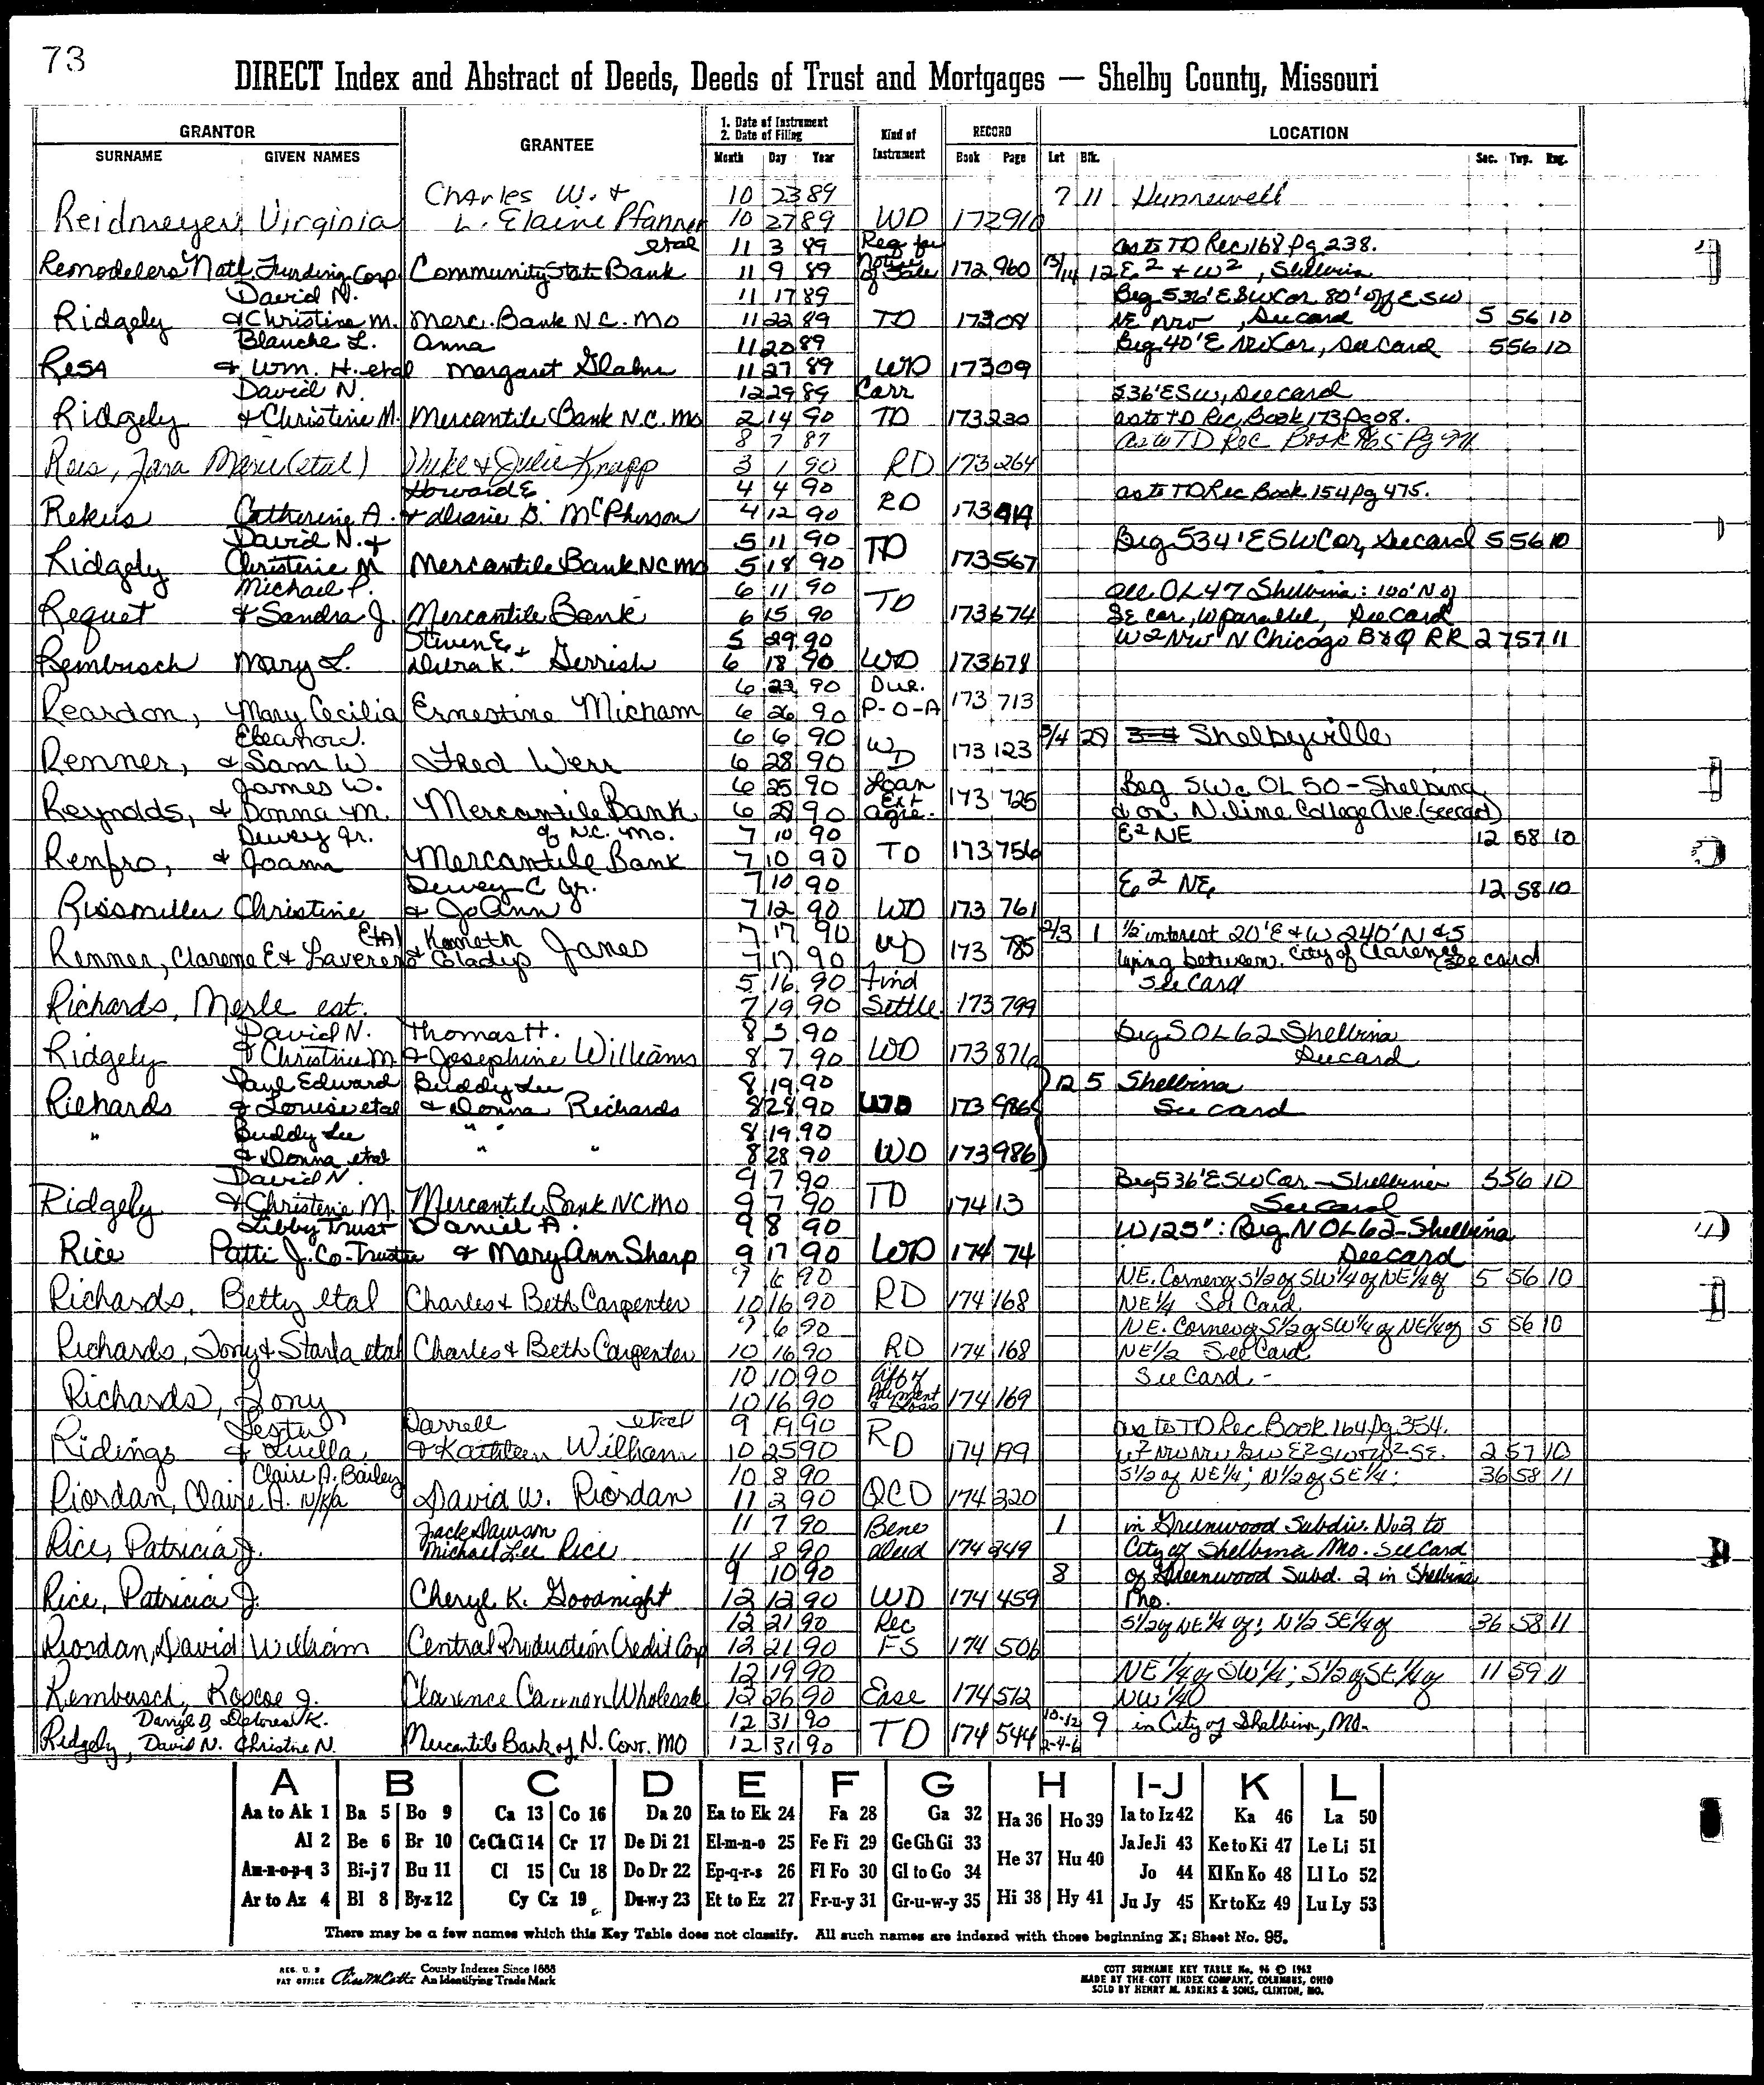 73
DIRECT Index and Abstract of Deeds, Deeds of Trust and Mortgages — Shelby County, Missouri
GRANTOR
SURNAME GIVEN NAMES
GRANTEE
1. Date of Instrument
2. Date of Filing
Month Day Year
Kind of Instrument
RECORD
Book Page
LOCATION
Lot Blk. Sec. Twp. Rng.
Charles W. & 10 23 89 7 11 Hunnewell
Reidmeyer, Virginia L. Elaine Pfanner 10 27 89 WD 172 910
etal 11 3 89 Req for as to TD Rec 168 Pg 238.
Remodelers Natl. Funding Corp Community State Bank 11 9 89 Notice of Sale 172 960 13/14 12 E2 & W2, Shelbina
David N. 11 17 89 Beg 536' E SW Cor 80' off E SW
Ridgely & Christine M. Merc. Bank N.C. Mo 11 22 89 TD 173 08 NE NW, See card 5 56 10
Blanche L. Anna 11 20 89 Beg 40' E NW Cor, See Card 5 56 10
Resa & Wm. H. etal Margaret 11 27 89 WD 173 09
David N. 12 29 89 Corr 536' E SW, See card
Ridgely & Christine M. Mercantile Bank N.C. Mo 2 14 90 TD 173 230 as to TD Rec, Book 173 Pg 08.
8 7 87 as to TD Rec Book 165 Pg
Reis, Jana Marie (etal) Mike & Julie Knapp 3 1 90 RD 173 264
Howard E. 4 4 90 as to TD Rec Book 154 pg 475.
Rekus Catherine A. & Marie B. McPherson 4 12 90 RD 173 414
David N. & 5 11 90 Beg 534' E SW Cor, See card 5 56 10
Ridgely Christine M Mercantile Bank NC Mo 5 18 90 TD 173 567
Michael P. 6 11 90 All OL 47 Shelbina: 100' N of
Requet & Sandra J. Mercantile Bank 6 15 90 TD 173 674 SE cor, W parallel, See Card
Steven E. & 5 29 90 W2 NW N Chicago B & Q RR 27 57 11
Rembusch Mary L. Debra K. Gerrish 6 18 90 WD 173 678
6 22 90 Dur.
Reardon, Mary Cecilia Ernestine Micham 6 26 90 P-O-A 173 713
Eleanor J. 6 6 90 3/4 29 3-4 Shelbyville
Renner, & Sam W Fred Werr 6 28 90 WD 173 123
James W. 6 25 90 Loan Beg SWc OL 50 - Shelbina
Reynolds, & Donna M. Mercantile Bank 6 28 90 Ext Agre. 173 725 & on N line College Ave. (see card)
Dewey Jr. of N.C. Mo. 7 10 90 E2 NE 12 58 10
Renfro, & Joann Mercantile Bank 7 10 90 TD 173 756
Dewey C Jr. 7 10 90 E2 NE 12 58 10
Rissmiller Christine & JoAnn 7 12 90 WD 173 761
Etal Kenneth 7 17 90 2/3 1 1/2 interest 20' E & W 240' N & S
Renner, Clarence E & Laverene & Gladys Janes 7 17 90 WD 173 785 lying between, City of Clarence See card
5 16 90 Find See Card
Richards, Merle est. 7 19 90 Settle. 173 799
David N. Thomas H. 8 3 90 Beg S OL 62 Shelbina
Ridgely & Christine M & Josephine Williams 8 7 90 WD 173 876 See card
Paul Edward Buddy Lee 8 19 90 12 5 Shelbina
Richards & Louise etal & Donna Richards 8 28 90 WD 173 986 See card
" Buddy Lee " " 8 19 90
& Donna etal " " 8 28 90 WD 173 986
David N. 9 7 90 Beg 536' E SW Cor - Shelbina 5 56 10
Ridgely & Christine M. Mercantile Bank NC MO 9 7 90 TD 174 13 See card
Libby Trust Daniel A. 9 8 90 W 125': Beg N OL 62 - Shelbina
Rice Patti J. Co-Trustee & Mary Ann Sharp 9 17 90 WD 174 74 See card
9 6 90 N.E. Corner of S1/2 of SW1/4 of NE1/4 of 5 56 10
Richards, Betty etal Charles & Beth Carpenter 10 16 90 RD 174 168 NE1/4 See Card
9 6 90 N.E. Corner of S1/2 of SW1/4 of NE1/4 of 5 56 10
Richards, Tony & Starla etal Charles & Beth Carpenter 10 16 90 RD 174 168 NE1/2 See Card
10 10 90 Aff of See Card -
Richards, Tony 10 16 90 Payment 174 169
Lester Darrell etal 9 19 90 as to TD Rec Book 164 Pg 354.
Ridings & Luella & Kathleen William 10 25 90 RD 174 199 2 57 10
Claire A. Bailey 10 8 90 S1/2 of NE1/4; N1/2 of SE1/4; 36 58 11
Riordan, Claire A. N/K/A David W. Riordan 11 2 90 QCD 174 320
Jack Dawson 11 7 90 Bene 1 in Greenwood Subdiv. No 2 to
Rice, Patricia J. Michael Lee Rice 11 8 90 deed 174 349 City of Shelbina Mo. See Card
9 10 90 8 of Greenwood Subd. 2 in Shelbina
Rice, Patricia J. Cheryl K. Goodnight 12 12 90 WD 174 459 Mo.
12 21 90 Rec S1/2 of NE1/4 of; N1/2 SE1/4 of 36 58 11
Riordan, David William Central Production Credit Corp 12 21 90 FS 174 506
12 19 90 NE1/4 of SW1/4; S1/2 of SE1/4 of 11 59 11
Rembusch, Roscoe J. Clarence Cannon Wholesale 12 26 90 Ease 174 512 NW 1/40
Darryl D Delores K. 12 31 90 10-12 9 in City of Shelbina, Mo.
Ridgely, David N. Christine N. Mercantile Bank of N. Cent. MO 12 31 90 TD 174 544 2-4-6
A B C D E F G H I-J K L
Aa to Ak 1 Ba 5 Bo 9 Ca 13 Co 16 Da 20 Ea to Ek 24 Fa 28 Ga 32 Ha 36 Ho 39 Ia to Iz 42 Ka 46 La 50
Al 2 Be 6 Br 10 Ce Ch Ci 14 Cr 17 De Di 21 El-m-n-o 25 Fe Fi 29 Ge Gh Gi 33 He 37 Hu 40 Ja Je Ji 43 Ke to Ki 47 Le Li 51
Am-n-o-p-q 3 Bi-j 7 Bu 11 Cl 15 Cu 18 Do Dr 22 Ep-q-r-s 26 Fl Fo 30 Gl to Go 34 Jo 44 Kl Kn Ko 48 Ll Lo 52
Ar to Az 4 Bl 8 By-z 12 Cy Cz 19 Du-w-y 23 Et to Ez 27 Fr-u-y 31 Gr-u-w-y 35 Hi 38 Hy 41 Ju Jy 45 Kr to Kz 49 Lu Ly 53
There may be a few names which this Key Table does not classify. All such names are indexed with those beginning X; Sheet No. 95.
REG. U. S. PAT OFFICE County Indexes Since 1888 An Identifying Trade Mark
COTT SURNAME KEY TABLE No. 96 © 1962
MADE BY THE COTT INDEX COMPANY, COLUMBUS, OHIO
SOLD BY HENRY M. ADKINS & SONS, CLINTON, MO.